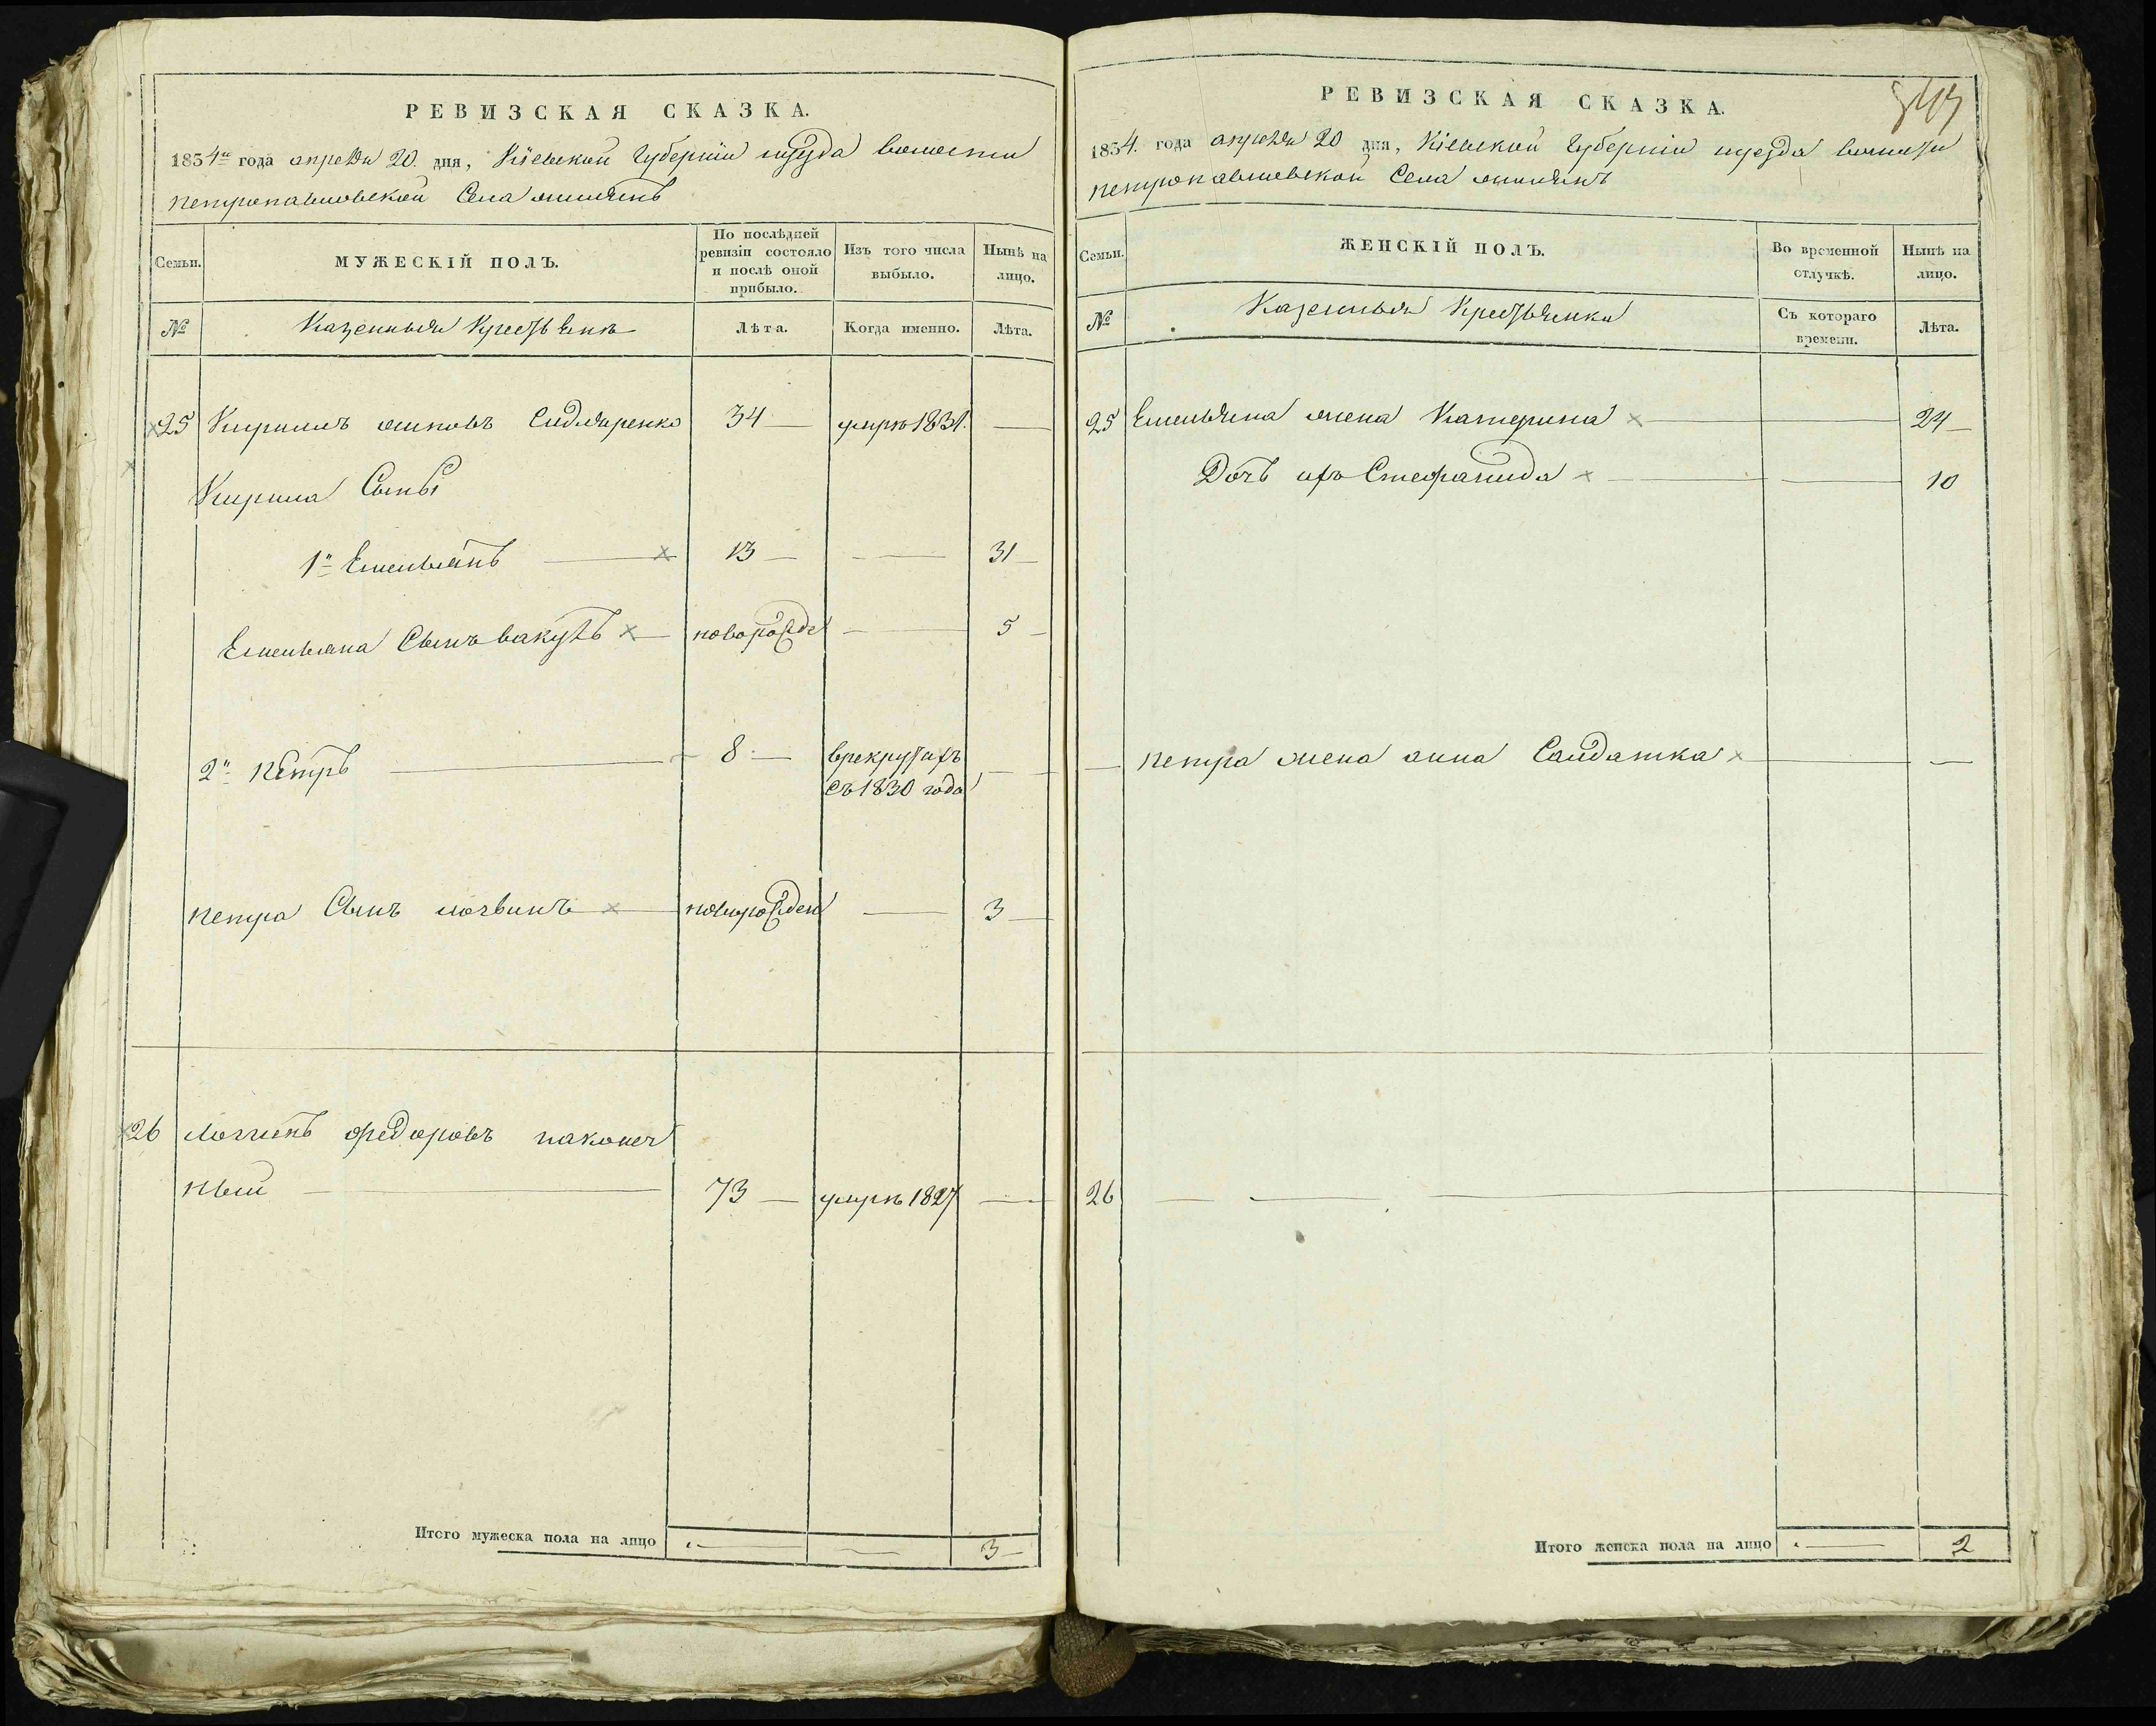 РЕВИЗСКАЯ СКАЗКА.
1834го года апреля 20. дня, Кіевской Губерніи и уезда волости
петропавловской Села
Семьи. МУЖЕСКІЙ ПОЛЪ. По послѣдней ревизіи состояло и послѣ оной прибыло. Изъ того числа выбыло. Нынѣ на лицо.
№ Казенныя Крестьяне Лѣта. Когда именно. Лѣта.
25 Кирилъ Сидляренко 34 — умре 1831. —
Кирила Сыны
1й Емельянъ — 13 — — 31 —
Емельяна Сынъ вакулъ — новорожде — 5 —
2й Петръ — 8 — врекрутахъ —
съ 1830 года
петра Сынъ логвинъ — новорожден — 3 —
26 Логвинъ федоровъ наконеч
ный — 73 — умре 1827 —
Итого мужеска пола на лицо — — 3 —
РЕВИЗСКАЯ СКАЗКА.
1834. года апреля 20 дня, Кіевской Губерніи и уезда волости
петропавловской Села
Семьи. ЖЕНСКІЙ ПОЛЪ. Во временной отлучкѣ. Нынѣ на лицо.
№ Казенныя Крестьянки Съ котораго времени. Лѣта.
25 Емельяна жена Катерина — — 24 —
Дочь ихъ Стефанида — — 10
— петра жена анна Салдатка — —
26 —
Итого женска пола на лицо — 2